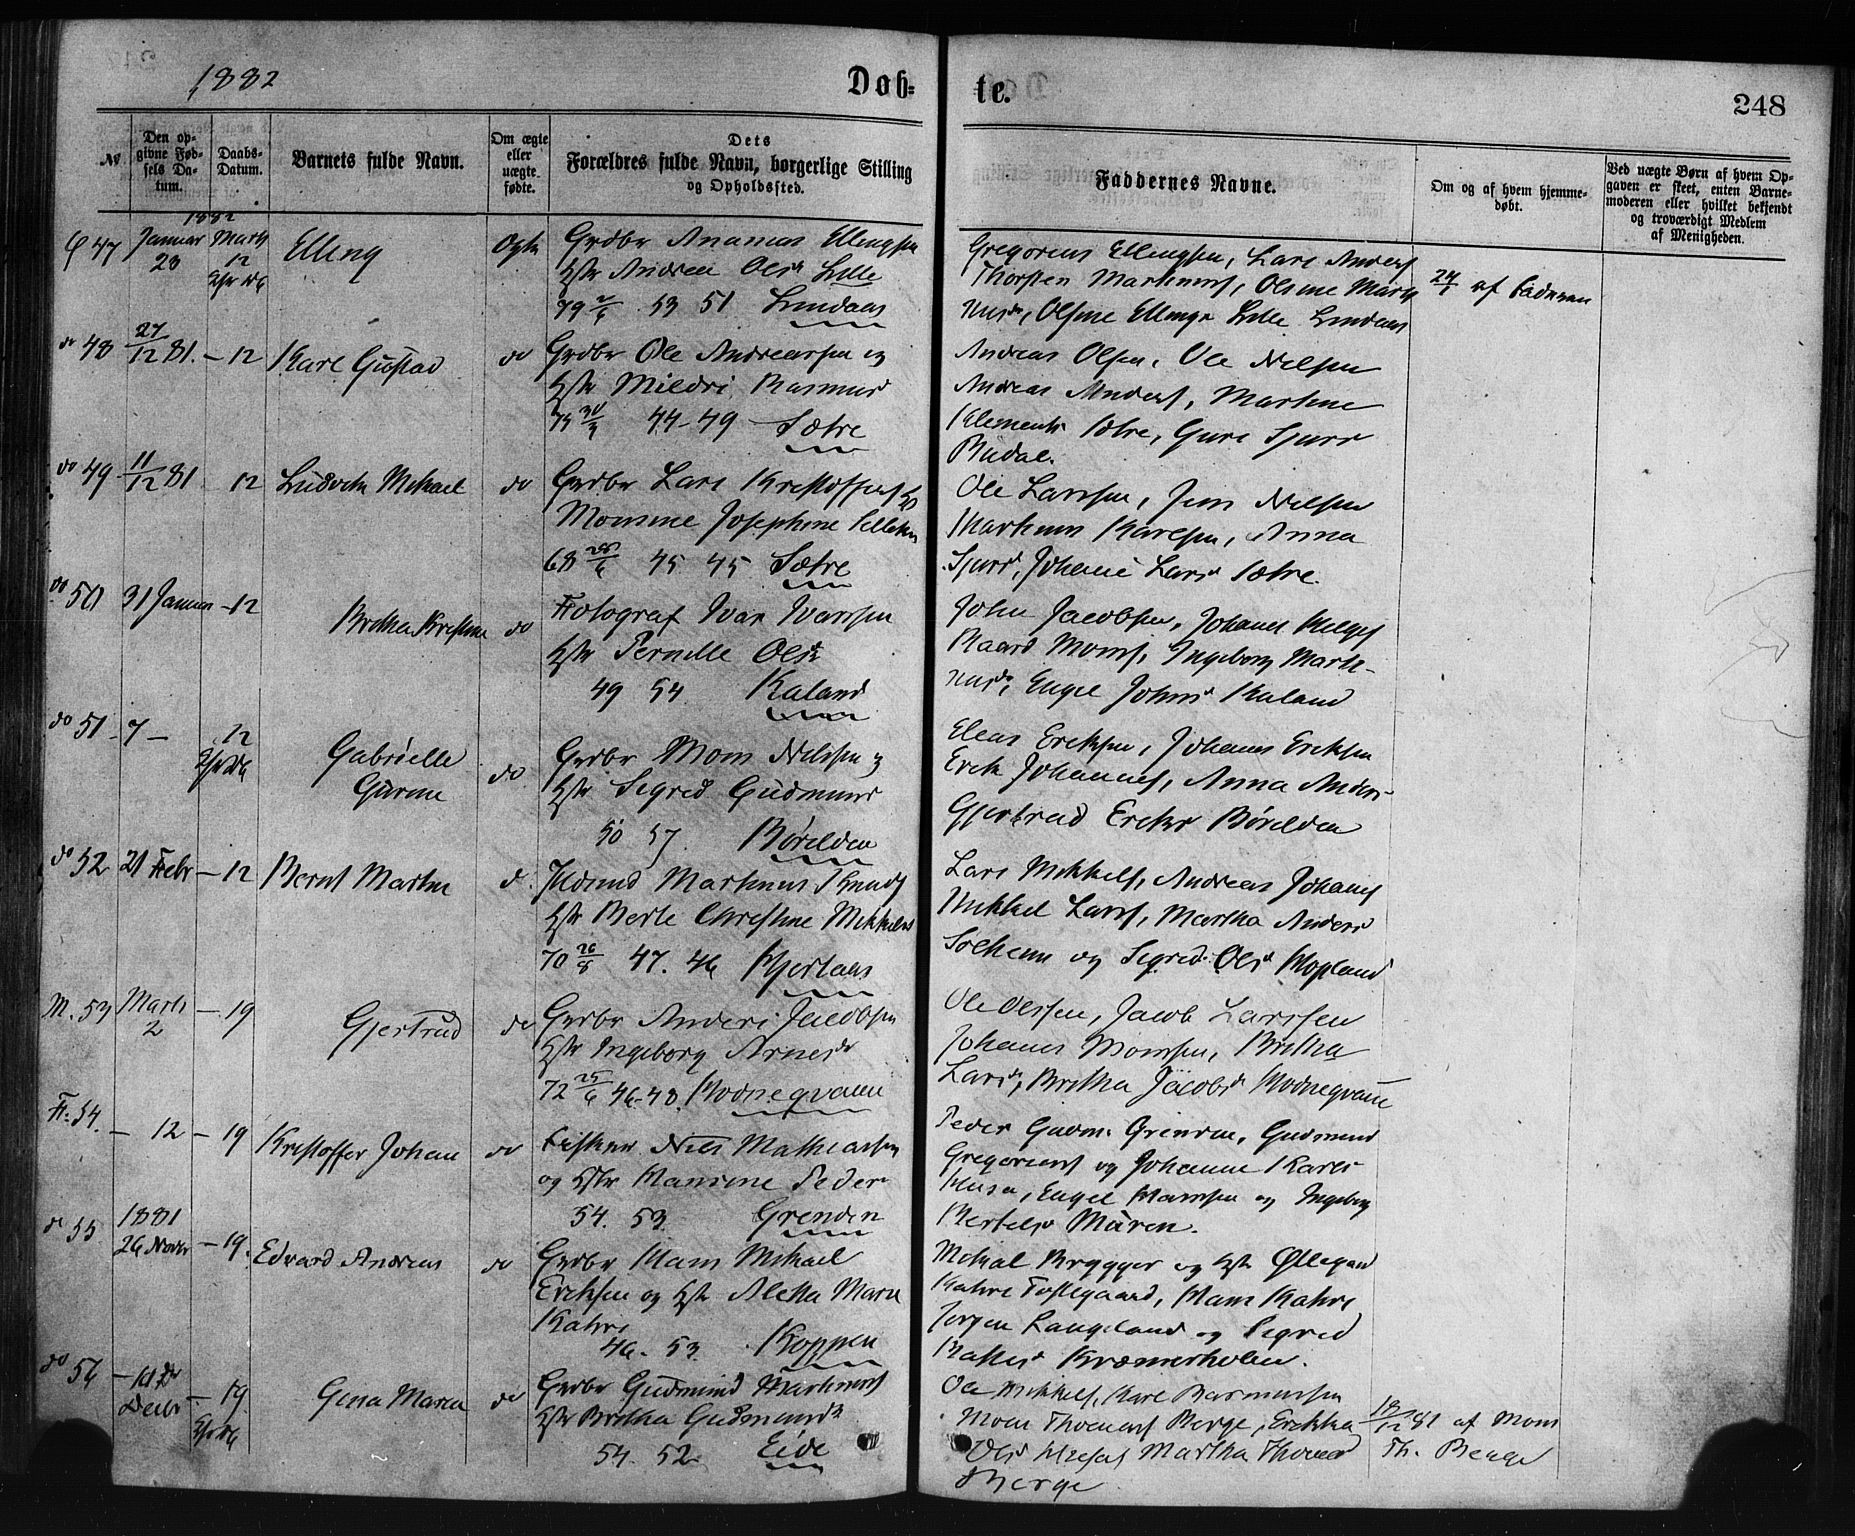 1882
Døb=
te.
248
No
Den op-
givne Fød-
sels Da-
tum.
Daabs-
Datum.
Barnets fulde Navn.
Om ægte
eller
uægte
fødte.
Dets
Forældres fulde Navn, borgerlige Stilling
og Opholdssted.
Faddernes Navne.
Om og af hvem hjemme-
døbt.
Ved uægte Børn af hvem Op-
gaven er skeet, enten Barne-
moderen eller hvilket bekjendt
og troværdigt Medlem
af Menigheden.
47
1882
Januar
23
Marts
12
Elling
Ægte
Grdbr Ananias Ellingsen
Hstr Andrea Olsd Lille
79 53 51 Lindaas
Gregorius Ellingsen, Lars Anders
Thorsten Martinus, Olsine Mart
nusd, Olsine Ellings Lille Lindaas
24/1 af Faderen
do 48
27/12 81.
– 12
Karl Gustav
do
Grdbr Ole Andreassen og
Hstr Mildri Rasmus
75 44-49 Sætre
Andreas Olsen, Ole Nilsen
Andreas Anders, Martine
Klements Sætre, Guro Sjurs
Risdal.
do 49
11/12 81
12
Ludvik Mikael
do
Grdbr Lars Kristoffers
Monsine Josephine
68 45 45 Sætre
Ole Larssen, Jens Nilsen
Martinus Karlsen, Anna
Sjursd, Johanne Larsd Sætre.
do 50
31 Januar
– 12
Britha Kristine
do
Fotograf Ivar Ivarssen
Hstr Pernille Olsd
49 54 Kaland
John Jacobsen, Johannes Helges
Baard Mons, Ingeborg Marti-
nusd, Engel Johnsd Kaland
do 51
7 –
12
Gabrielle
Gurine
do
Grdbr Mons Nilssen og
Hstr Sigrid Gudmund
50 57 Børilden
Elias Eriksen, Johannes Eriksen
Erik Johannes, Anna Anders
Gjertrud Eriks Børilden
do 52
21 Febr
– 12
Bernt Martin
d.
Martinus Knuds
Hstr Berte Christine Mikkelsd
70 26/8 47. 46 Hjertaas
Lars Mikkels, Andreas Johans
Mikkel Lars, Martha Anders
Solheim og Sigrid Olsd Hopland
M. 53
Marts
2
– 19
Gjertrud
do
Grdbr Anders Jacobsen
Hstr Ingeborg Arnesd
72 25/6 46-48. Hodneqvam
Ole Olssen, Jacob Larssen
Johannes Monssen, Britha
Larsd, Britha Jacobsd Hodneqvam
Fr. 54.
– 12
– 19
Kristoffer Johan
do
Fisker Nils Mathiassen
og Hstr Hansine Peder
54. 53. Grenden
Peder Gudm. Grinden, Gudmund
Gregorius og Johanne Karls
Husa, Engel Hanssen og Ingeborg
Bertelsd Muren.
do 55
1881
26 Novbr
– 19.
Edvard Andreas
do
Grdbr Hans Mikael
Eriksen og Hstr Aletta Maria
Kahrs
46. 53. Koppen
Mikal Brygger og Hstr Øllegaard
Kahrs Toftegaard, Hans Kahrs
Jørgen Langeland og Sigrid
Kræmmerholmen.
do 56
Decbr
– 19
Gina Maria
do
Grdbr Gudmund Martinus
Hstr Britha Gudmundsd
54. 52. Eide
Ole Mikkels, Karl Rasmussen
Mons Thomas Berge, Erikka
Olsd Martha Thomasd
Berge
18/12 81 af Mons
Th. Berge